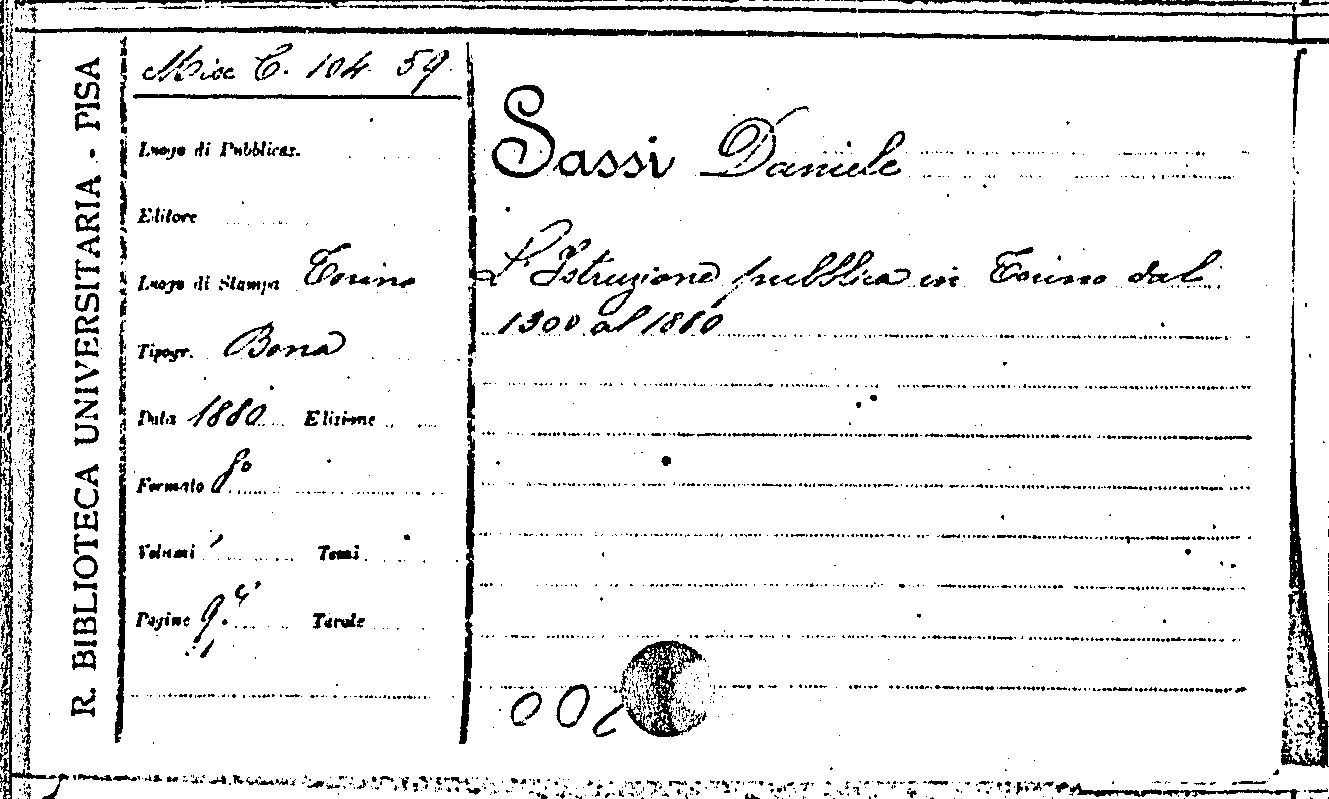 R. BIBLIOTECA UNIVERSITARIA - PISA
Misc C. 104. 59.
Luogo di Pubblicaz.
Editore
Luogo di Stampa Torino
Tipogr. Bona
Data 1880 Edizione
Formato 8°
Volumi Tomi
Pagine Tavole
Sassi Daniele
L'Istruzione pubblica in Torino dal
1300 al 1880
00